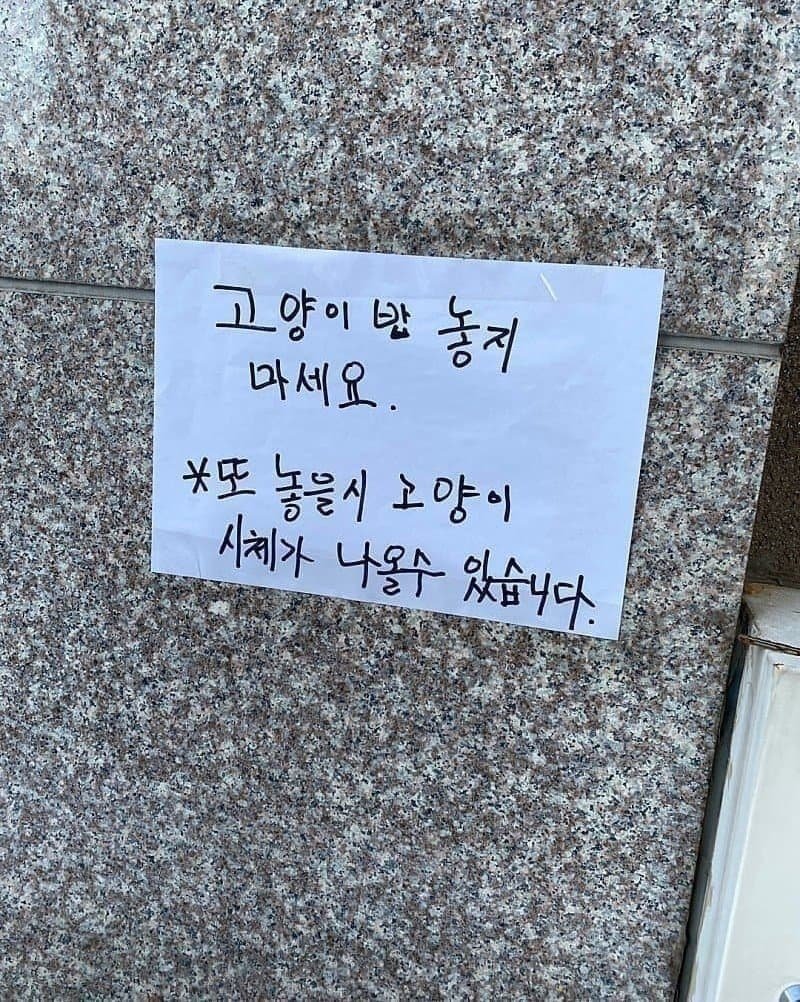 고양이 밥 놓지
마세요.
*또 놓을시 고양이
시체가 나올수 있습니다.